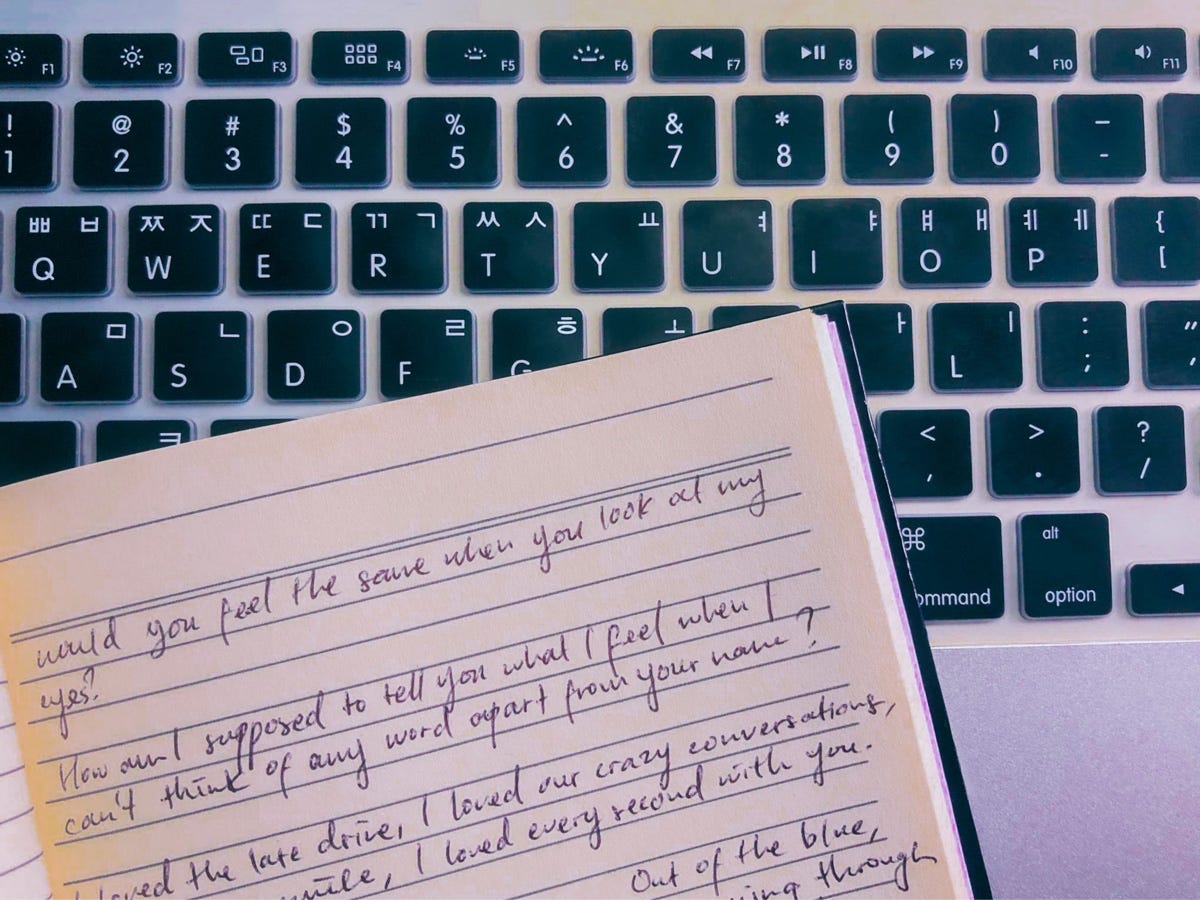 F1 F2 F3 F4 F5 F6 F7 F8 F9 F10 F11
! @ # $ % ^ & * ( ) —
1 2 3 4 5 6 7 8 9 0 -
ㅃ ㅂ ㅉ ㅈ ㄸ ㄷ ㄲ ㄱ ㅆ ㅅ ㅛ ㅕ ㅑ ㅒ ㅐ ㅖ ㅔ {
Q W E R T Y U I O P [
ㅁ ㄴ ㅇ ㄹ ㅎ ㅗ ㅏ ㅣ : "
A S D F G L ; '
ㅋ < > ?
, . /
⌘ alt
command option
would you feel the same when you look at my
eyes?
How am I supposed to tell you what I feel when I
can't think of any word apart from your name?
I loved the late drive, I loved our crazy conversations,
smile, I loved every second with you.
Out of the blue,
through